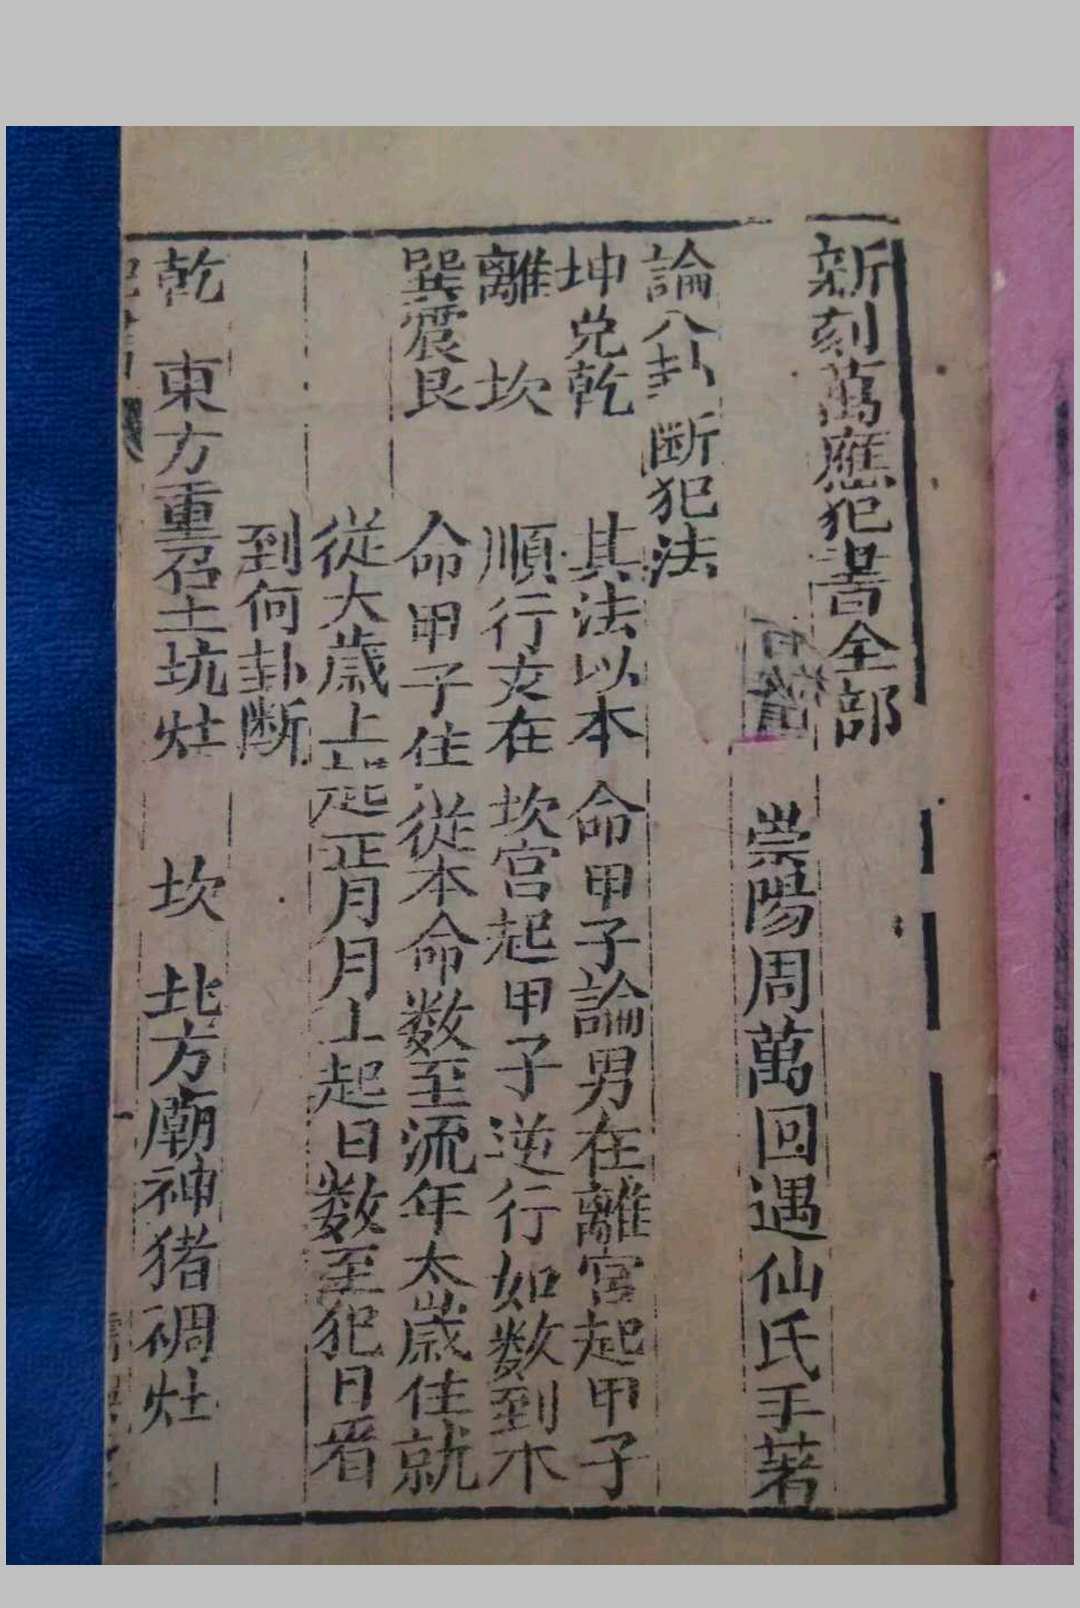 新刻萬應犯書全部
崇陽周萬回遇仙氏手著
論八卦斷犯法
坤兌乾 其法以本命甲子論男在離宮起甲子
離 坎 順行女在坎宮起甲子逆行如数到本
巽震艮 命甲子住從本命数至流年太歲住就
從大歲上起正月月上起日数至犯日看
到何卦断
乾 東方重召土坑灶 坎 北方廟神猪碉灶